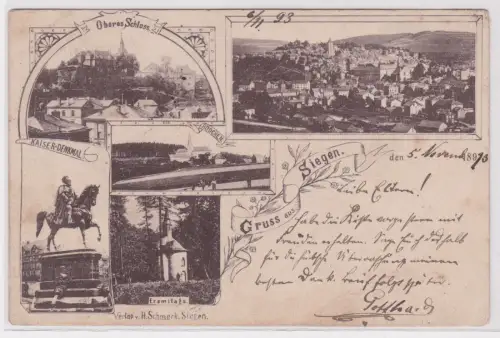 Oberes Schloss.
6/11 93
KAISER-DENKMAL
Gruss aus Siegen.
den 5. November 1893
Liebe Eltern!
habe die Kiste mit
Freuden erhalten. Sage Euch deshalb
für die hübsche Überraschung meinen
besten Dank. Brief folgt später.
Gotthard
Eremitage
Verlag v. H. Schmuck, Siegen.